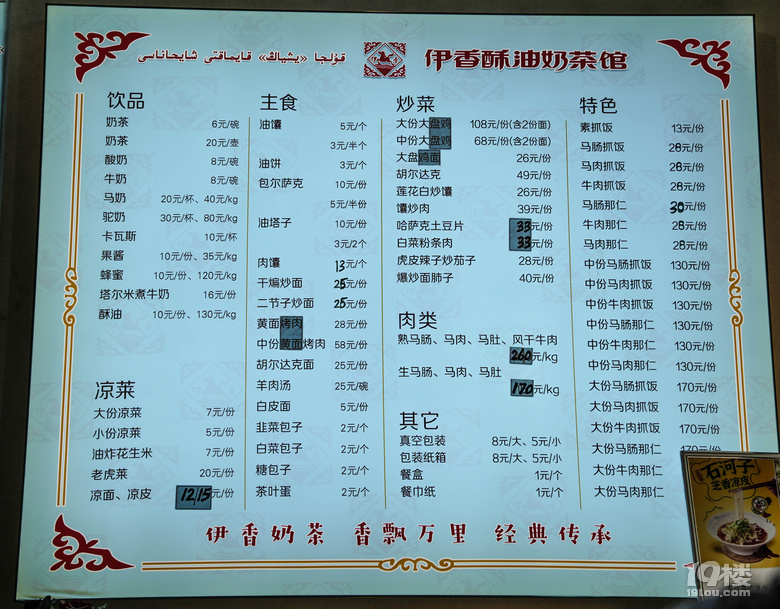 قۇلجا «يىشياڭ» قايماقتى شايخاناسى
伊香酥油奶茶馆
饮品
奶茶 6元/碗
奶茶 20元/壶
酸奶 8元/碗
牛奶 8元/碗
马奶 20元/杯、40元/kg
驼奶 30元/杯、80元/kg
卡瓦斯 10元/杯
果酱 10元/份、35元/kg
蜂蜜 10元/份、120元/kg
塔尔米煮牛奶 16元/份
酥油 10元/份、130元/kg
凉菜
大份凉菜 7元/份
小份凉菜 5元/份
油炸花生米 7元/份
老虎菜 20元/份
凉面、凉皮 12/15元/份
主食
油馕 5元/个
3元/半个
油饼 3元/个
包尔萨克 10元/份
5元/半份
油塔子 10元/份
3元/2个
肉馕 13元/个
干煸炒面 25元/份
二节子炒面 25元/份
黄面烤肉 28元/份
中份黄面烤肉 58元/份
胡尔达克面 25元/份
羊肉汤 25元/碗
白皮面 5元/份
韭菜包子 2元/个
白菜包子 2元/个
糖包子 2元/个
茶叶蛋 2元/个
炒菜
大份大盘鸡 108元/份(含2份面)
中份大盘鸡 68元/份(含2份面)
大盘鸡面 26元/份
胡尔达克 49元/份
莲花白炒馕 26元/份
馕炒肉 39元/份
哈萨克土豆片 33元/份
白菜粉条肉 33元/份
虎皮辣子炒茄子 28元/份
爆炒面肺子 40元/份
肉类
熟马肠、马肉、马肚、风干牛肉
260元/kg
生马肠、马肉、马肚
170元/kg
其它
真空包装 8元/大、5元/小
包装纸箱 8元/大、5元/小
餐盒 1元/个
餐巾纸 1元/个
特色
素抓饭 13元/份
马肠抓饭 28元/份
马肉抓饭 28元/份
牛肉抓饭 28元/份
马肠那仁 30元/份
牛肉那仁 28元/份
马肉那仁 28元/份
中份马肠抓饭 130元/份
中份马肉抓饭 130元/份
中份牛肉抓饭 130元/份
中份马肠那仁 130元/份
中份牛肉那仁 130元/份
中份马肉那仁 130元/份
大份马肠抓饭 170元/份
大份马肉抓饭 170元/份
大份牛肉抓饭 170元/份
大份马肠那仁 170元/份
大份牛肉那仁
大份马肉那仁
伊香奶茶 香飘万里 经典传承
石河子
芝香凉皮
19楼
19lou.com